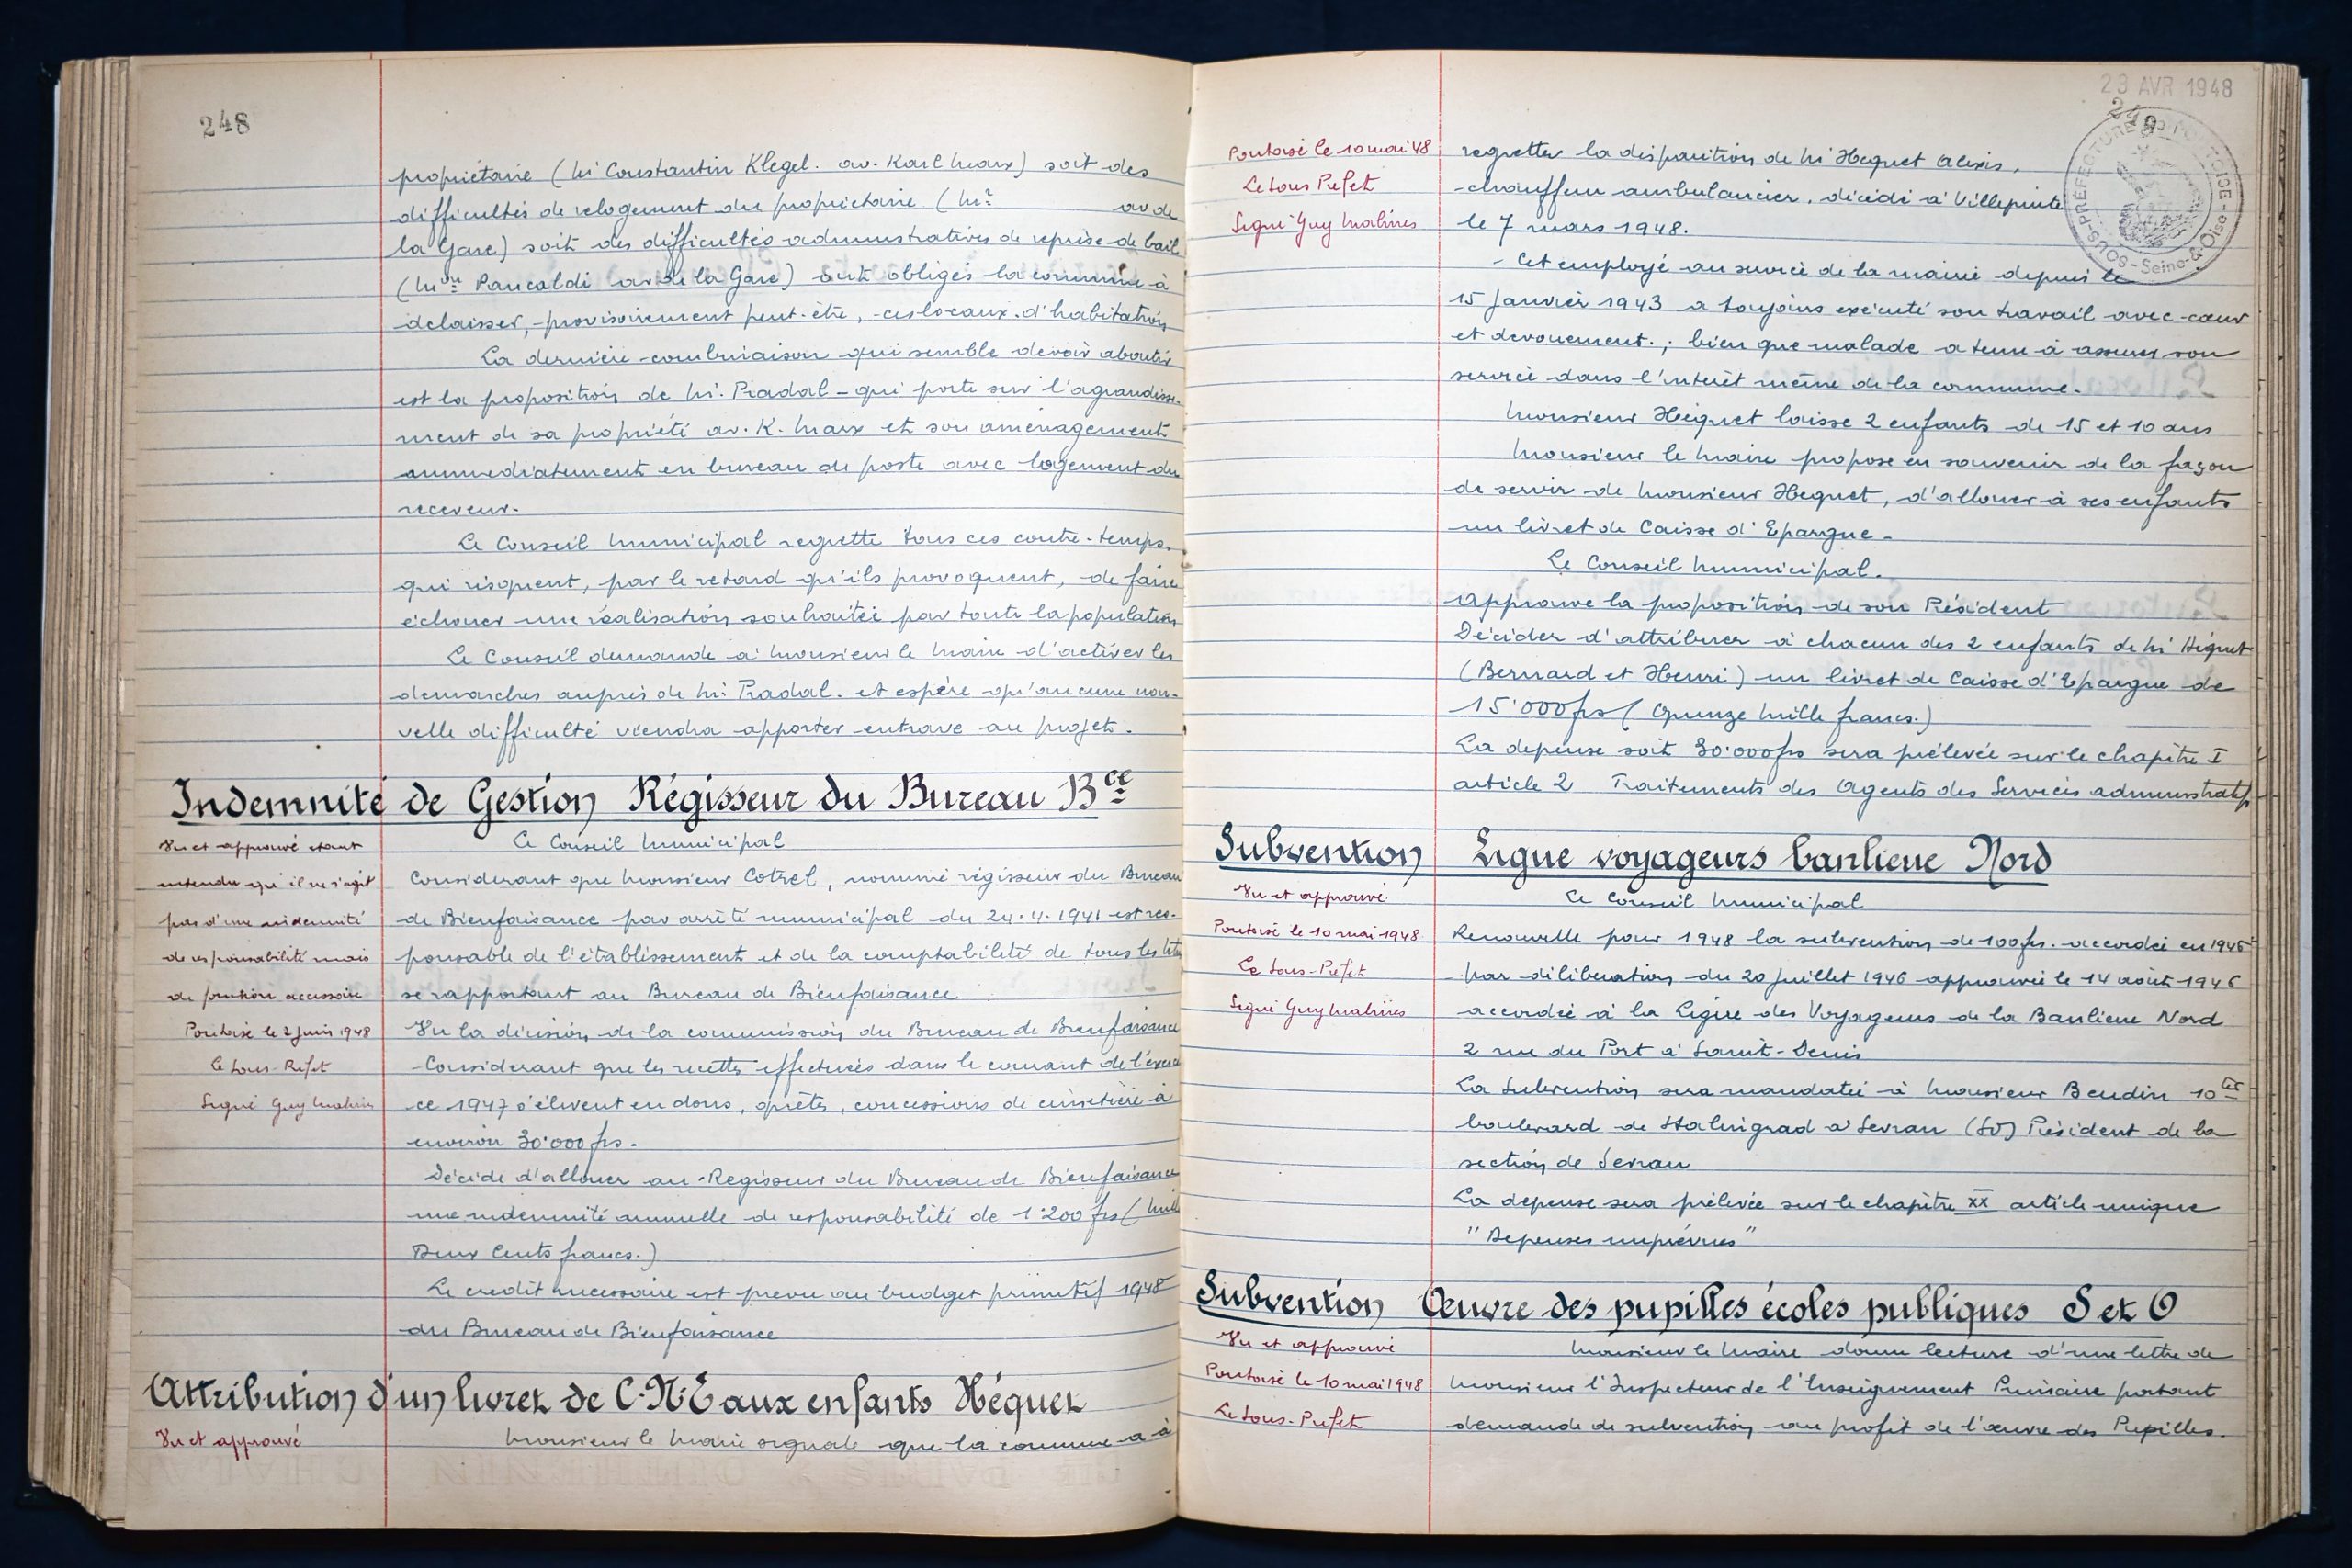 248
propriétaire (Mr Constantin Klegel. av. Karl Marx) soit des
difficultés de relogement du propriétaire (Mr av de
la Gare) soit des difficultés administratives de reprise de bail
(Mme Pancaldi av de la Gare) ont obligés la commune à
délaisser, provisoirement peut-être, ces locaux d'habitation
La dernière combinaison qui semble devoir aboutir
est la proposition de Mr. Pradal - qui porte sur l'agrandisse-
ment de sa propriété av. K. Marx et son aménagement
immédiatement en bureau de poste avec logement du
receveur.
Le Conseil Municipal regrette tous ces contre-temps.
qui risquent, par le retard qu'ils provoquent, de faire
échouer une réalisation souhaitée par toute la population
Le Conseil demande à Monsieur le Maire d'activer les
démarches auprès de Mr. Pradal. et espère qu'aucune nou-
velle difficulté viendra apporter entrave au projet.
Indemnité de Gestion Régisseur du Bureau Bce
Vu et approuvé étant
entendu qu'il ne s'agit
pas d'une indemnité
de responsabilité mais
de fonction accessoire
Pontoise le 2 Juin 1948
Le Sous-Préfet
Signé Guy Malines
Le Conseil Municipal
Considérant que Monsieur Cotrel, nommé régisseur du Bureau
de Bienfaisance par arrêté municipal du 24.4.1941 est res-
ponsable de l'établissement et de la comptabilité de tous les
se rapportant au Bureau de Bienfaisance
Vu la décision de la commission du Bureau de Bienfaisance
Considérant que les recettes effectuées dans le courant de l'exerci
ce 1947 s'élèvent en dons, quêtes, concessions de cimetière à
environ 30.000 frs.
Décide d'allouer au Régisseur du Bureau de Bienfaisance
une indemnité annuelle de responsabilité de 1.200 frs (Mille
Deux Cents francs.)
Le crédit nécessaire est prévu au budget primitif 1948
du Bureau de Bienfaisance
Attribution d'un livret de C.N.E aux enfants Héquet
Vu et approuvé
Monsieur le Maire signale que la commune a à
23 AVR 1948
249
SOUS-PRÉFECTURE DE PONTOISE
Seine-&-Oise
Pontoise le 10 mai 48
Le Sous Préfet
Signé Guy Malines
regretter la disparition de Mr Hequet Alexis,
chauffeur ambulancier, décédé à Villepinte
le 7 mars 1948.
- Cet employé au service de la mairie depuis le
15 Janvier 1943 a toujours exécuté son travail avec cœur
et dévouement.; bien que malade a tenu à assurer son
service dans l'intérêt même de la commune.
Monsieur Héquet laisse 2 enfants de 15 et 10 ans
Monsieur le Maire propose en souvenir de la façon
de servir de Monsieur Hequet, d'allouer à ses enfants
un livret de Caisse d'Epargne.
Le Conseil Municipal.
Approuve la proposition de son Président
Décider d'attribuer à chacun des 2 enfants de Mr Héquet
(Bernard et Henri) un livret de Caisse d'Epargne de
15.000 frs (Quinze Mille francs.)
La dépense soit 30.000 frs sera prélevée sur le chapitre I
article 2 Traitements des Agents des Services administratifs
Subvention Ligue voyageurs banlieue Nord
Vu et approuvé
Pontoise le 10 mai 1948
Le Sous-Préfet
Signé Guy Malines
Le Conseil Municipal
Renouvelle pour 1948 la subvention de 100 frs. accordée en 1946
par délibération du 20 Juillet 1946 approuvée le 14 août 1946
accordée à la Ligue des Voyageurs de la Banlieue Nord
2 rue du Port à Saint-Denis
La Subvention sera mandatée à Monsieur Beudin 10ter
boulevard de Stalingrad à Sevran (SO) Président de la
section de Sevran
La dépense sera prélevée sur le chapitre XX article unique
"Dépenses imprévues"
Subvention Œuvre des pupilles écoles publiques S et O
Vu et approuvé
Pontoise le 10 mai 1948
Le Sous-Préfet
Monsieur le Maire donne lecture d'une lettre de
Monsieur l'Inspecteur de l'Enseignement Primaire portant
demande de subvention au profit de l'œuvre des Pupilles.